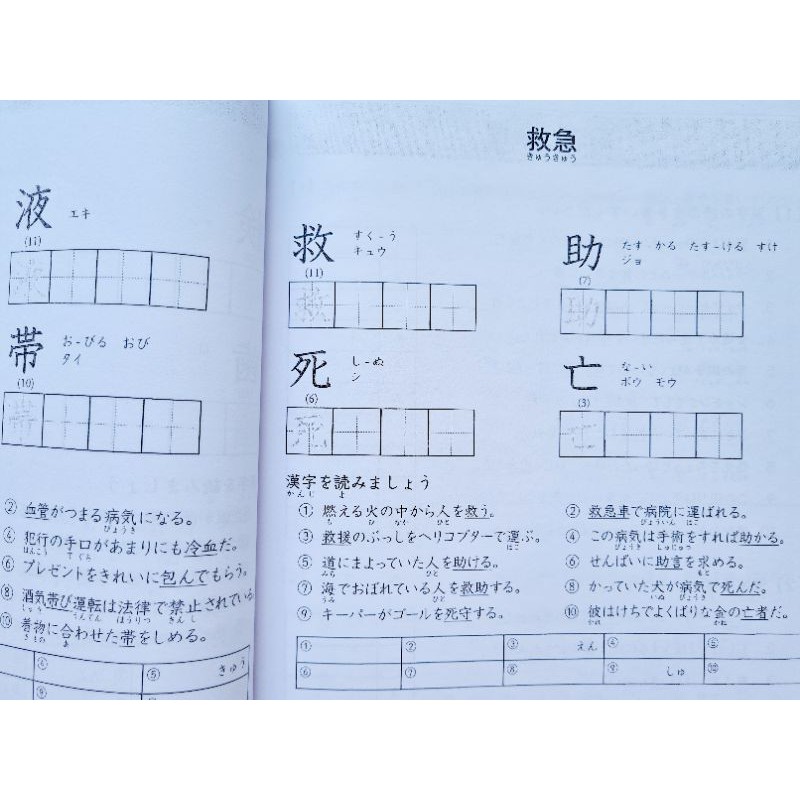 液 エキ
(11)
帯 お-びる おび
タイ
(10)
② 血管がつまる病気になる。
びょうき
④ 犯行の手口があまりにも冷血だ。
はんこう てぐち
⑥ プレゼントをきれいに包んでもらう。
⑧ 酒気帯び運転は法律で禁止されている
しゅ うんてん ほうりつ きんし
⑩ 着物に合わせた帯をしめる。
きもの あ
④ ⑤ きゅう
⑨
救急
きゅうきゅう
救 すく-う
キュウ
(11)
助 たす-かる たす-ける すけ
ジョ
(7)
死 し-ぬ
シ
(6)
亡 な-い
ボウ モウ
(3)
漢字を読みましょう
かんじ よ
① 燃える火の中から人を救う。
も ひ なか ひと
② 救急車で病院に運ばれる。
びょういん はこ
③ 救援のぶっしをヘリコプターで運ぶ。
はこ
④ この病気は手術をすれば助かる。
びょうき しゅじゅつ
⑤ 道にまよっていた人を助ける。
みち ひと
⑥ せんぱいに助言を求める。
もと
⑦ 海でおぼれている人を救助する。
うみ ひと
⑧ かっていた犬が病気で死んだ。
いぬ びょうき
⑨ キーパーがゴールを死守する。
⑩ 彼はけちでよくばりな金の亡者だ。
かれ かね
① ② ③ えん ④ ⑤
⑥ ⑦ ⑧ ⑨ しゅ ⑩